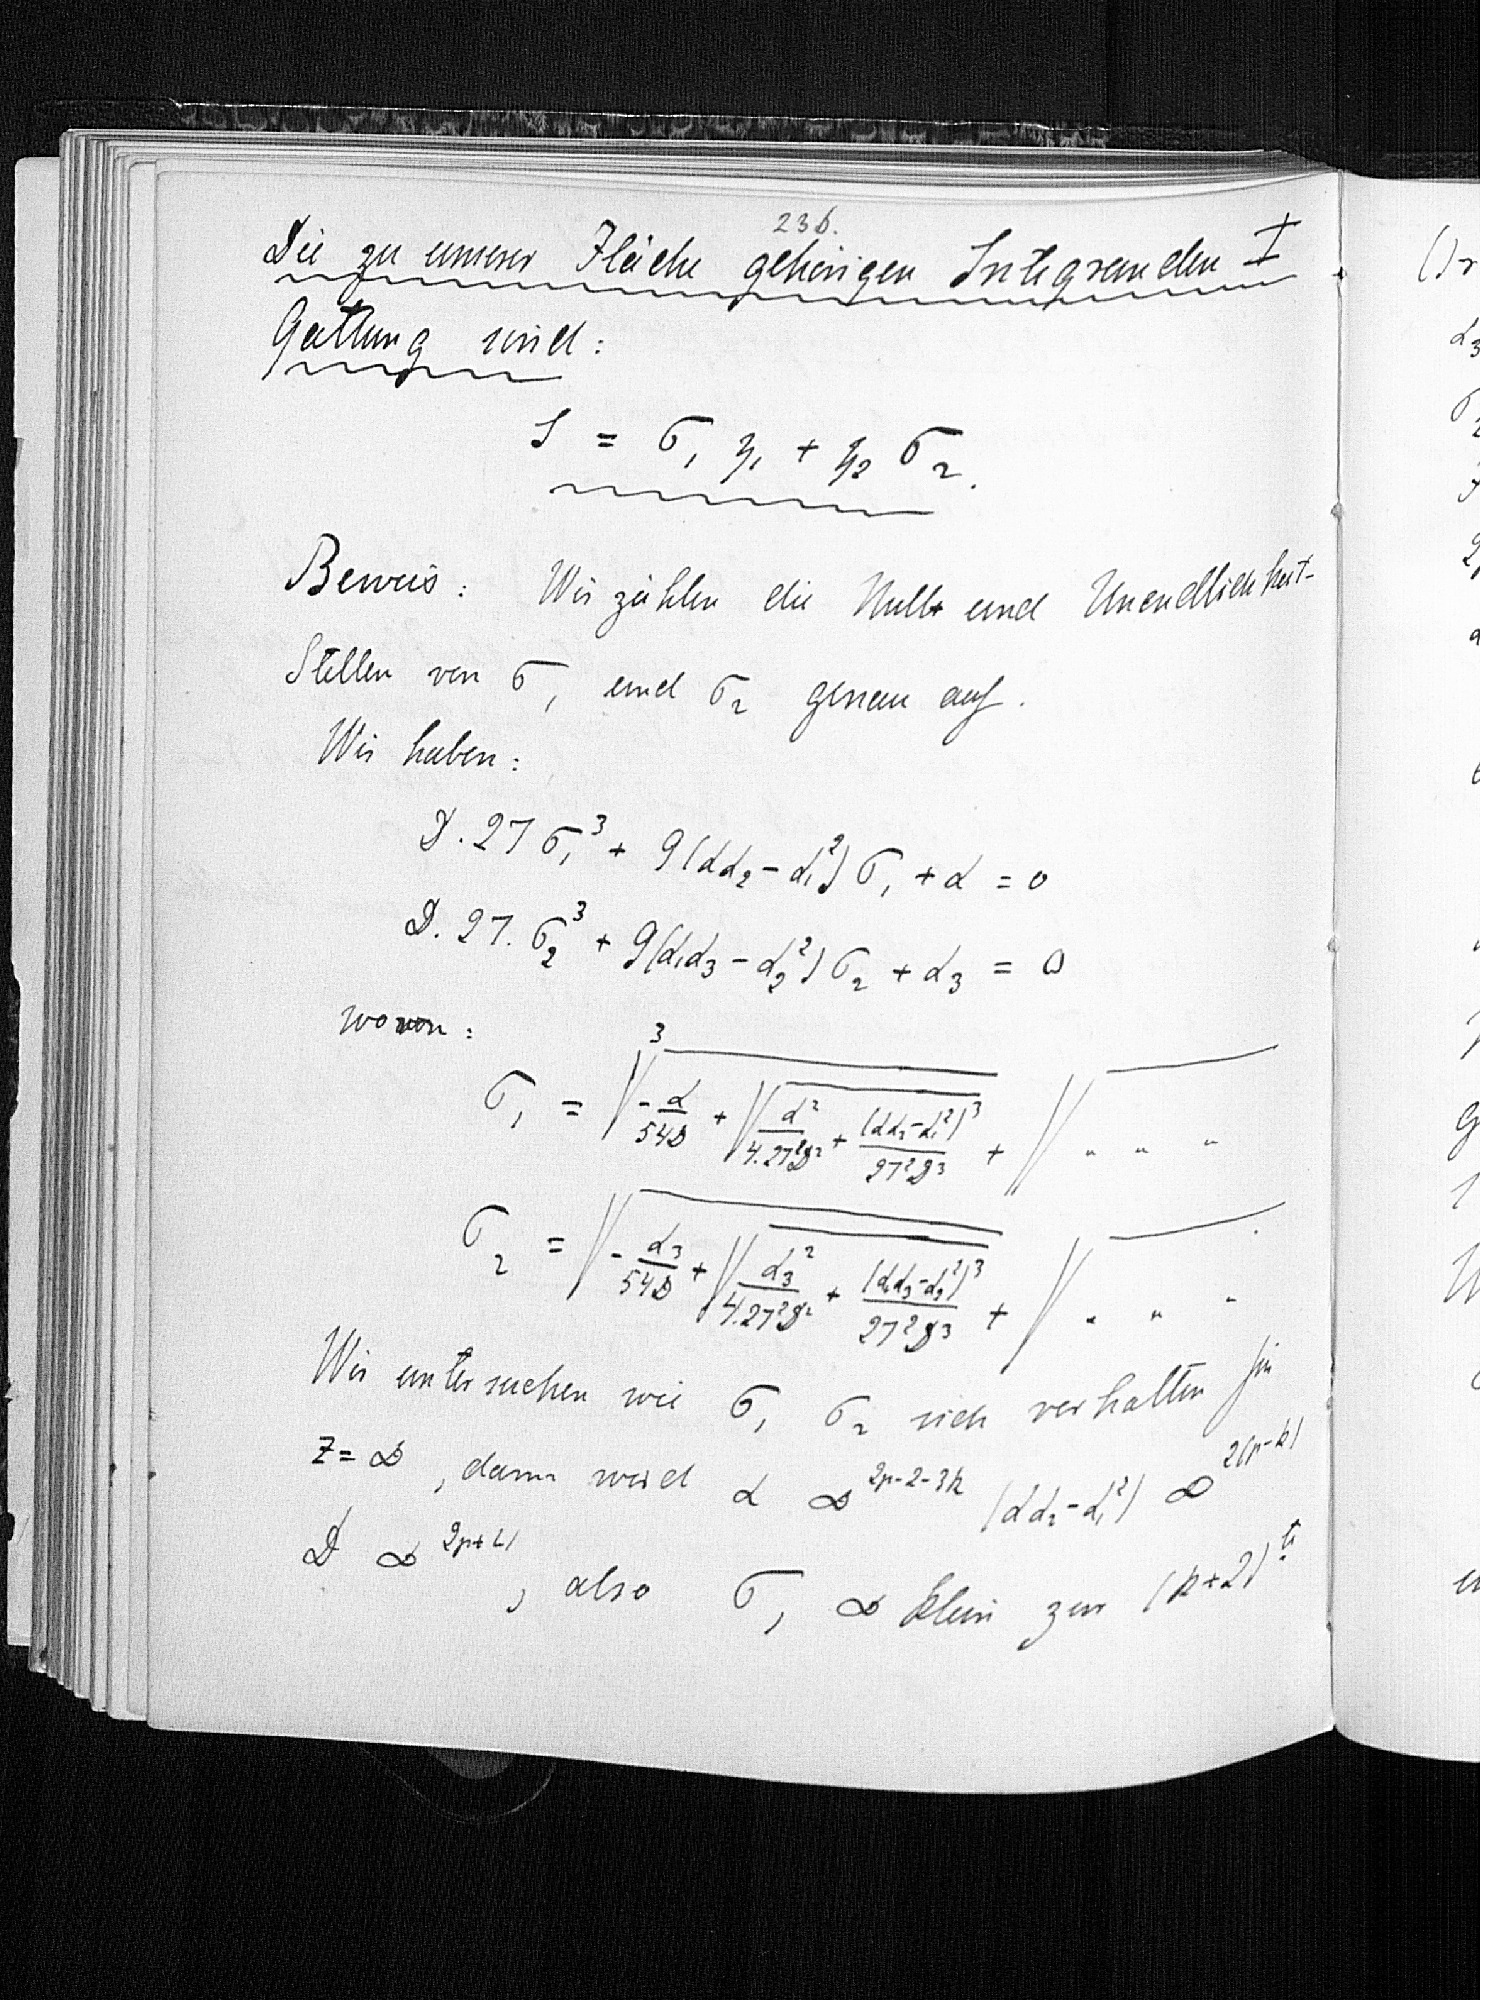 236.
Die zu unserer Fläche gehörigen Integranden I
Gattung sind:
S = σ₁ η₁ + η₂ σ₂.
Beweis: Wir zählen die Null- und Unendlichkeit-
Stellen von σ₁ und σ₂ genau auf.
Wir haben:
D. 27 σ₁³ + 9(αα₂ - α₁²) σ₁ + α = 0
D. 27. σ₂³ + 9(α₁α₃ - α₂²) σ₂ + α₃ = 0
woraus:
σ₁ = ∛(-α/54D + √(α²/4.27²D² + (αα₂-α₁²)³/27²D³)) + √ " " "
σ₂ = √(-α₃/54D + √(α₃²/4.27²D² + (α₁α₃-α₂²)³/27²D³)) + √ " " "
Wir untersuchen wie σ₁ σ₂ sich verhalten für
z = ∞, dann wird α ∞^(2p-2-3k) (αα₂-α₁²) ∞^(2(p-k))
D ∞^(2p+4), also σ₁ ∞ klein zur (k+2)^(ten)